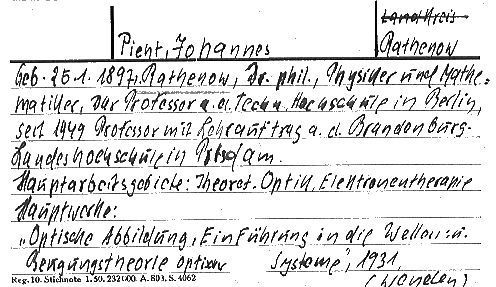 Landkreis
Picht, Johannes
Rathenow
Geb. 25.1.1897, Rathenow, Dr. phil., Physiker und Mathe-
matiker, War Professor a. d. Techn. Hochschule in Berlin,
seit 1949 Professor mit Lehrauftrag a. d. Brandenburg.
Landeshochschule in Potsdam.
Hauptarbeitsgebiete: Theoret. Optik, Elektronentherapie
Hauptwerke:
"Optische Abbildung, Einführung in die Wellen- u.
Beugungstheorie optischer Systeme", 1931
Reg. 10. Stichnote 1. 50. 232000. A. 803. S. 4062
(wenden)